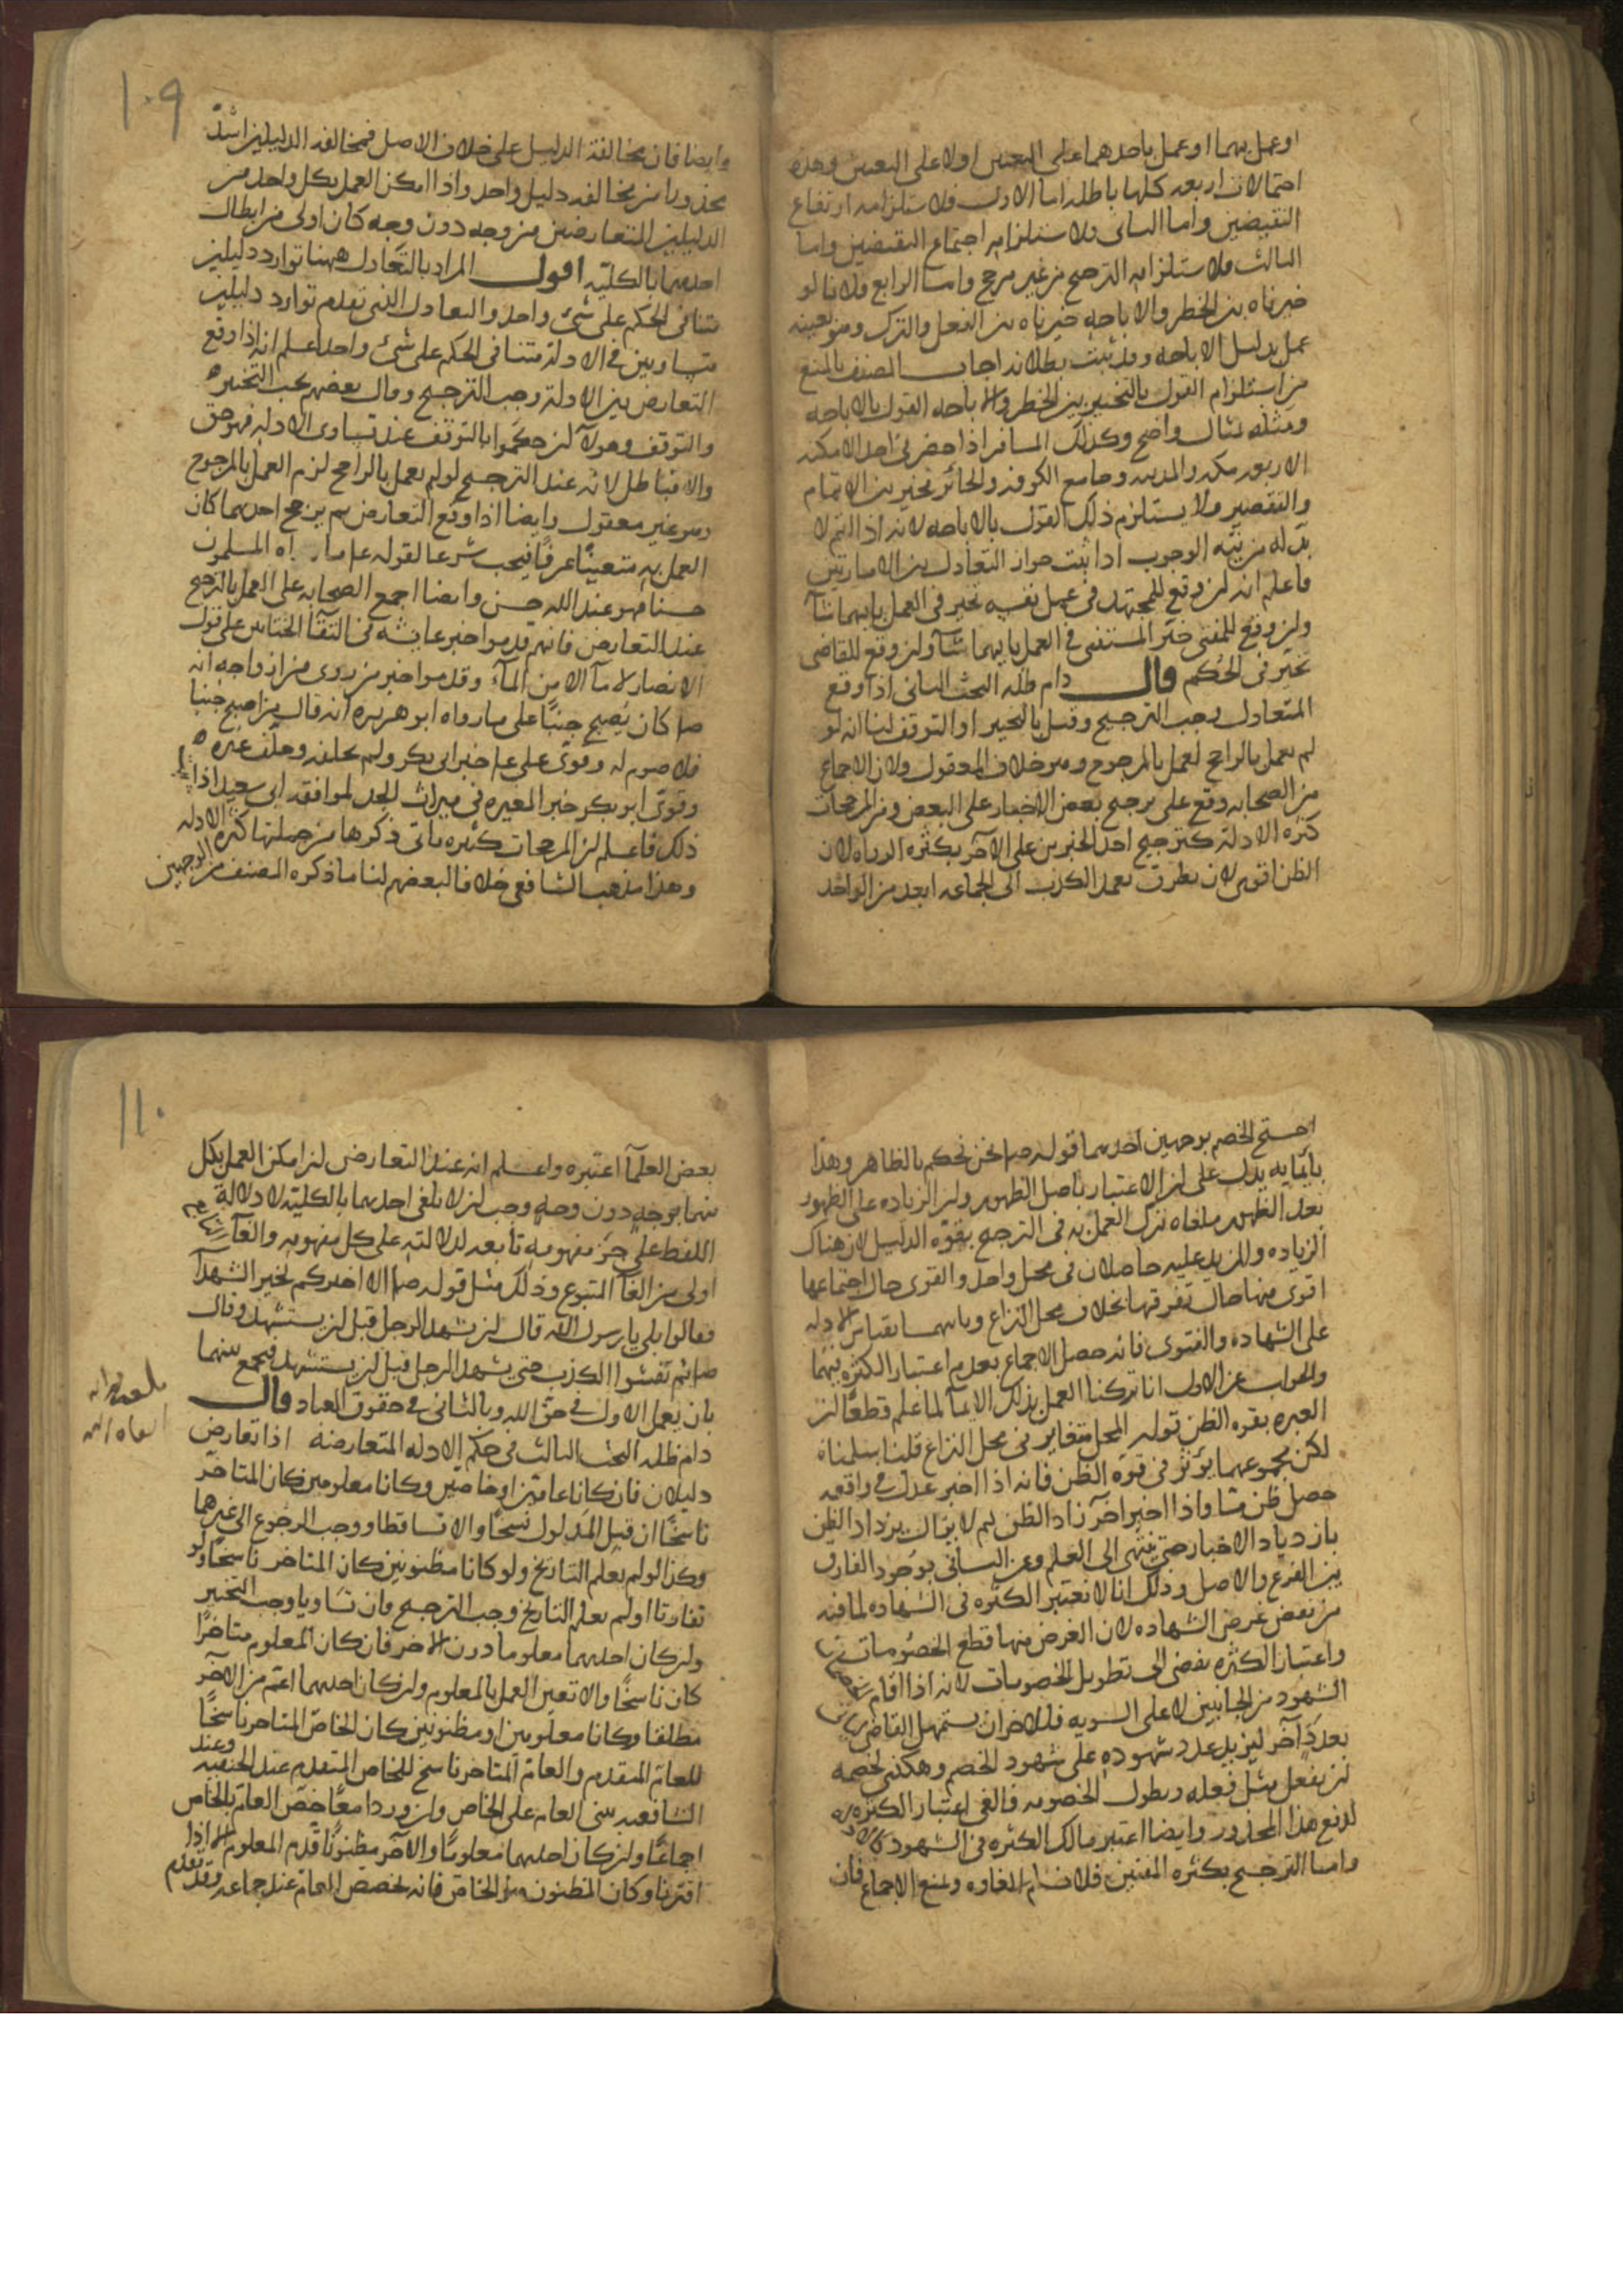 او عمل بهما او عمل باحدهما على التعيين اولا على التعيين وهذه
احتمالات اربعه كلها باطله اما الاول فلاستلزامه ارتفاع
النقيضين واما الثانى فلاستلزامه اجتماع النقيضين واما
الثالث فلاستلزامه الترجيح من غير مرجح واما الرابع فلانا لو
خيرناه بين الخطر والاباحه خيرناه بين الفعل والترك وهو بعينه
عمل بدليل الاباحه وقد ثبت بطلانه اجاب المصنف بالمنع
من استلزام القول بالتخيير بين الخطر والاباحه القول بالاباحه
ومثله بمثال واضح وكذلك المسافر اذا حضر فى احد الامكنه
الاربعه مكه والمدينه وجامع الكوفه والحائر تخير بين الاتمام
والتقصير ولا يستلزم ذلك القول بالاباحه لانه اذا اتم لا
بد له من نيه الوجوب اذا ثبت جواز التعادل بين الامارتين
فاعلم انه ان وقع للمجتهد فى عمل نفسه تخير فى العمل بايهما شآ
وان وقع للمفتى خير المستفتى فى العمل بايهما شآ وان وقع للقاضى
تخير فى الحكم قال دام ظله البحث الثانى اذا وقع
التعادل وجب الترجيح وقيل بالتخيير او التوقف لنا انه لو
لم يعمل بالراجح لعمل بالمرجوح وهو خلاف المعقول ولان الاجماع
من الصحابه وقع على ترجيح بعض الاخبار على البعض ومن المرجحات
كثره الادلة كترجيح احد الخبرين على الآخر بكثره الرواه لان
الظن اقوى لان تطرق تعمد الكذب الى الجماعه ابعد من الواحد
١٠٩
وايضا فان مخالفة الدليل على خلاف الاصل فمخالفه الدليلين اشد
محذورا من مخالفه دليل واحد واذا امكن العمل بكل واحد من
الدليلين المتعارضين من وجه دون وجه كان اولى من ابطال
احدهما بالكليه اقول المراد بالتعادل ههنا توارد دليلين
متنافى الحكم على شئ واحد والتعادل الذى تقدم توارد دليلين
متساويين فى الادلة متنافى الحكم على شئ واحد اعلم انه اذا وقع
التعارض بين الادلة وجب الترجيح وقال بعضهم يجب التخيير
والتوقف وهولآ ان حكموا بالتوقف عند تساوى الادله فهو حق
والا فباطل لانه عند الترجيح لو لم يعمل بالراجح لزم العمل بالمرجوح
وهو غير معقول وايضا اذا وقع التعارض ثم ترجح احدهما كان
العمل به متعينًا عرفًا فيجب شرعا لقوله عم ما رآه المسلمون
حسنا فهو عند الله حسن وايضا اجمع الصحابه على العمل بالترجيح
عند التعارض فانهم قدموا خبر عايشه فى التقآ الختانين على قول
الانصار لا مآ الا من المآء وقدموا خبر من روى من ازواجه انه
صلم كان يُصبح جنبًا على ما رواه ابو هريره انه قال من اصبح جنبا
فلا صوم له وقوى على عم خبر ابى بكر ولم يحلفه وحلف غيره
وقوى ابو بكر خبر المغيره فى ميراث الجد لموافقه ابى سعيد اذا
ذلك فاعلم ان المرجحات كثيره ياتى ذكرها من جملتها كثره الادله
وهذا مذهب الشافعى خلافا لبعضهم لنا ما ذكره المصنف من الوجهين
احتج الخصم بوجهين احدهما قوله صلم نحن نحكم بالظاهر وهذا
بايمايه يدل على ان الاعتبار باصل الظهور وان الزياده على الظهور
بعد الظهور ملغاه نترك العمل به فى الترجيح بقوه الدليل لان هناك
الزياده والمزيد عليه حاصلان فى محل واحد والقوى حال اجتماعها
اقوى منها حال تفرقها بخلاف محل النزاع وثانيهما بقياس الادله
على الشهاده والفتوى فانه حصل الاجماع بعدم اعتبار الكثره فيهما
والجواب عن الاول انا تركنا العمل بذلك الايمآ لما علم قطعًا ان
العبره بقوه الظن قوله المحل متغاير فى محل النزاع قلنا سلمناه
لكن مجموعهما يؤثر فى قوة الظن فانه اذا اخبر عدل فى واقعه
حصل ظن مّا واذا اخبر آخر زاد الظن ثم لا يزال يزداد الظن
بازدياد الاخبار حتى ينتهى الى العلم وعن الثانى بوجود الفارق
بين الفرع والاصل وذلك انا لا نعتبر الكثره فى الشهاده لما فيه
من نقض غرض الشهاده لان الغرض منها قطع الخصومات
واعتبار الكثره يفضى الى تطويل الخصومات لانه اذا اقام
الشهود من الجانبين لا على السويه فللاخر ان يستمهل القاضى
بعد آخر ليزيد عدد شهوده على شهود الخصم وهكذى لخصمه
ان يفعل مثل فعله ويطول الخصومه فالغى اعتبار الكثره
لدفع هذا المحذور وايضا اعتبر مالك الكثره فى الشهود
واما الترجيح بكثره المفتين فلا نسلم الغاوه ونمنع الاجماع فان
١١٠
بعض العلمآ اعتبره واعلم انه عند التعارض ان امكن العمل بكل
منهما بوجه دون وجه وجب ان لا يلغى احدهما بالكليه لان دلالة
اللفظ على جزء مفهومه تابعه لدلالته على كل مفهومه والغآ التابع
اولى من الغآ المتبوع وذلك مثل قوله صلم الا اخبركم بخير الشهدآ
فقالوا بلى يا رسول الله قال ان يشهد الرجل قبل ان يستشهد وقال
صلم ثم تفشوا الكذب حتى يشهد الرجل قبل ان يستشهد فيجمع بينهما
بان يعمل الاول فى حق الله وبالثانى فى حقوق العباد قال
دام ظله البحث الثالث فى حكم الادله المتعارضة اذا تعارض
دليلان فان كانا عامين او خاصين وكانا معلومين كان المتاخر
ناسخًا ان قبل المدلول نسخًا والا تساقطا ووجب الرجوع الى غيرهما
وكذا لو لم يعلم التاريخ ولو كانا مظنونين كان المتاخر ناسخًا ولو
تقارنا او لم يعلم التاريخ وجب الترجيح وان تساويا وجب التخيير
وان كان احدهما معلوما دون الاخر فان كان المعلوم متاخرًا
كان ناسخًا والا تعين العمل بالمعلوم وان كان احدهما اعم من الآخر
مطلقا وكانا معلومين او مظنونين كان الخاص المتاخر ناسخًا
للعام المتقدم والعام المتاخر ناسخ للخاص المتقدم عند الحنفيه وعند
الشافعيه يبنى العام على الخاص وان وردا معًا خص العام بالخاص
اجماعًا وان كان احدهما معلومًا والآخر مظنونًا قدم المعلوم الا اذا
اقترنا وكان المظنون هو الخاص فانه يخصص العام عند جماعه وقد تقدم